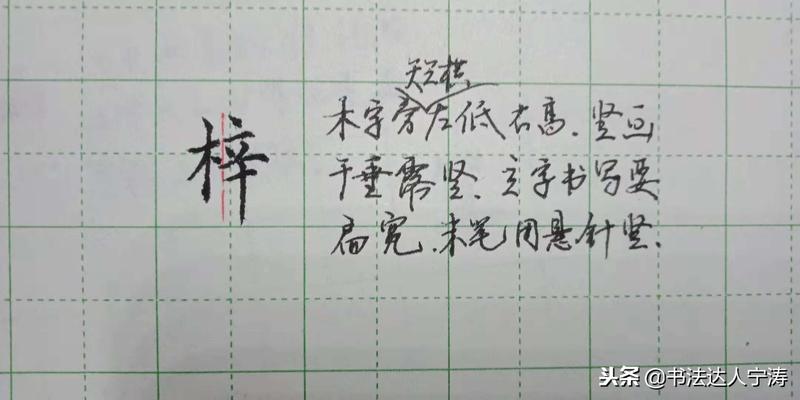 梓
短横
木字旁左低右高、竖画
干垂露竖、立字书写要
扁宽、末笔用悬针竖、
头条 @书法达人宁涛